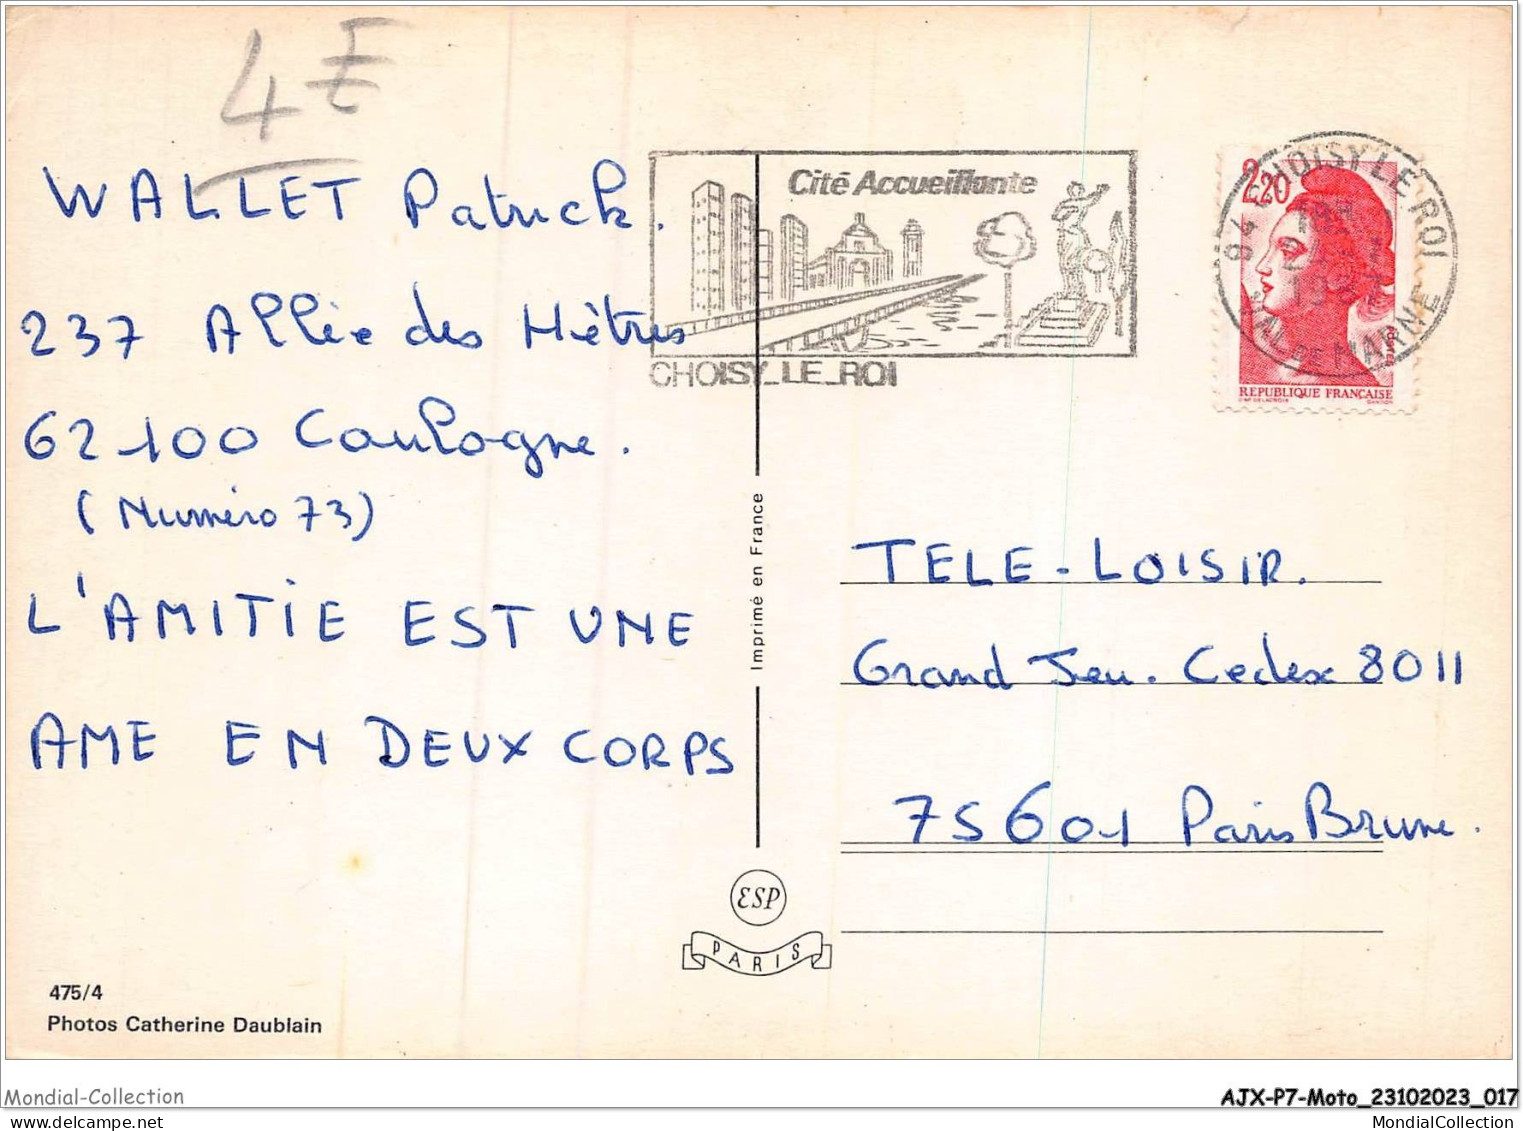 4E
WALLET Patrick.
237 Allée des Hêtres
62100 Coulogne.
(Numéro 73)
L'AMITIE EST UNE
AME EN DEUX CORPS
475/4
Photos Catherine Daublain
Cité Accueillante
CHOISY_LE_ROI
Imprimé en France
ESP
PARIS
2,20
REPUBLIQUE FRANÇAISE
94 CHOISY LE ROI
VAL DE MARNE
TELE-LOISIR.
Grand Jeu. Cedex 8011
75601 Paris Brune.
Mondial-Collection
AJX-P7-Moto_23102023_017
MondialCollection